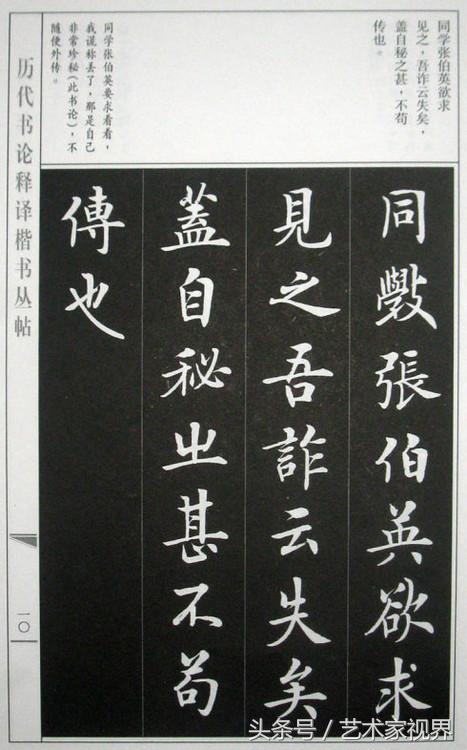 同学张伯英欲求
见之,吾诈云失矣,
盖自秘之甚,不苟
传也。
同学张伯英要求看看,
我谎称丢了,那是自己
非常珍秘(此书论),不
随便外传。
同斆張伯英欲求
見之吾詐云失矣
蓋自秘之甚不苟
傳也
历代书论释译楷书丛帖
一〇
头条号/艺术家视界